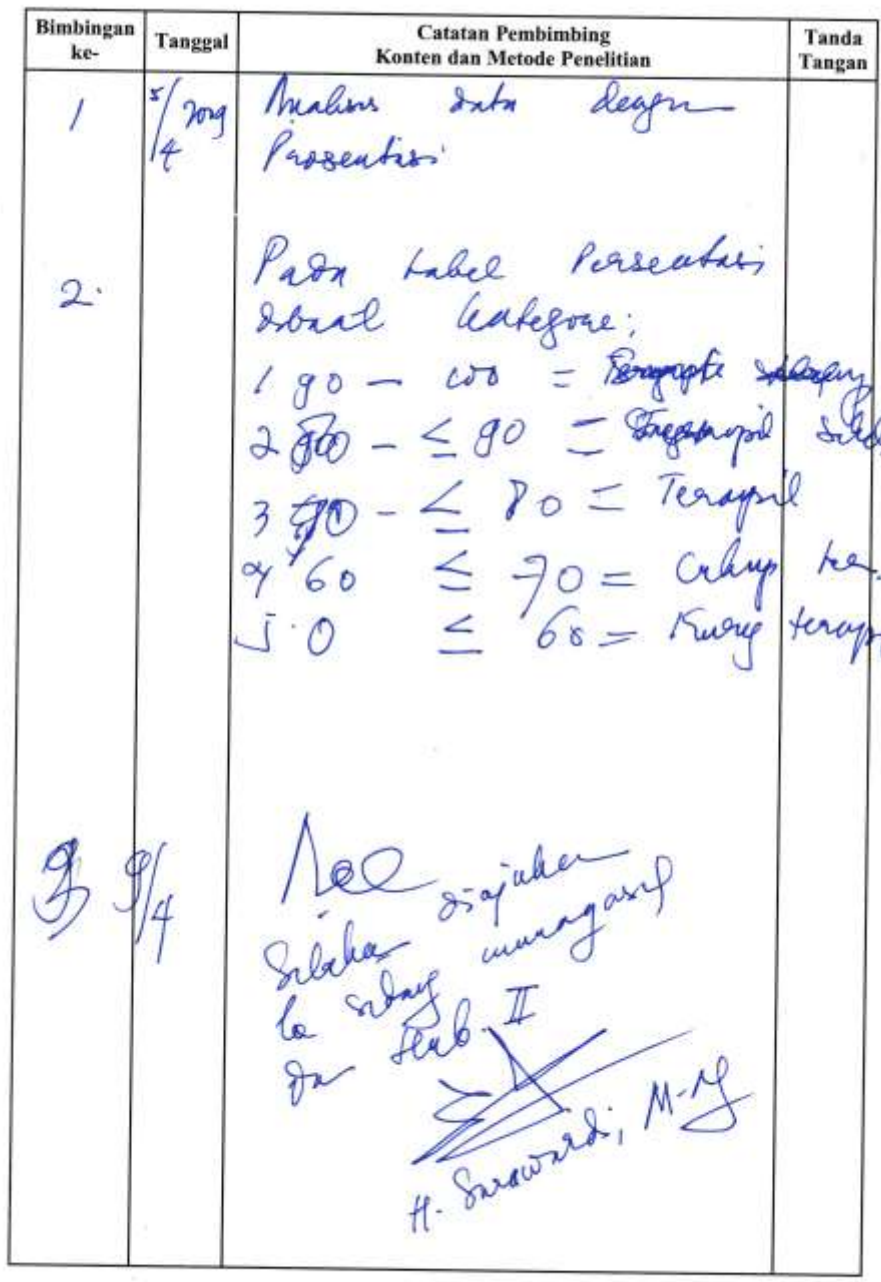 Bimbingan ke- Tanggal Catatan Pembimbing Konten dan Metode Penelitian Tanda Tangan
1 5/4 Analisis data dengan
Prosentasi
2. Pada tabel Persentasi
dibuat kategori:
1 90 - 100 =
2 80 - ≤ 90 =
3 70 - ≤ 80 = Terampil
4 60 ≤ 70 = Cukup ter
5. 0 ≤ 60 = Kurang teramp
3 9/4 Acc
Silahkan diajukan
ke sidang munaqasyl
II
H. Surawardi, M.Ag